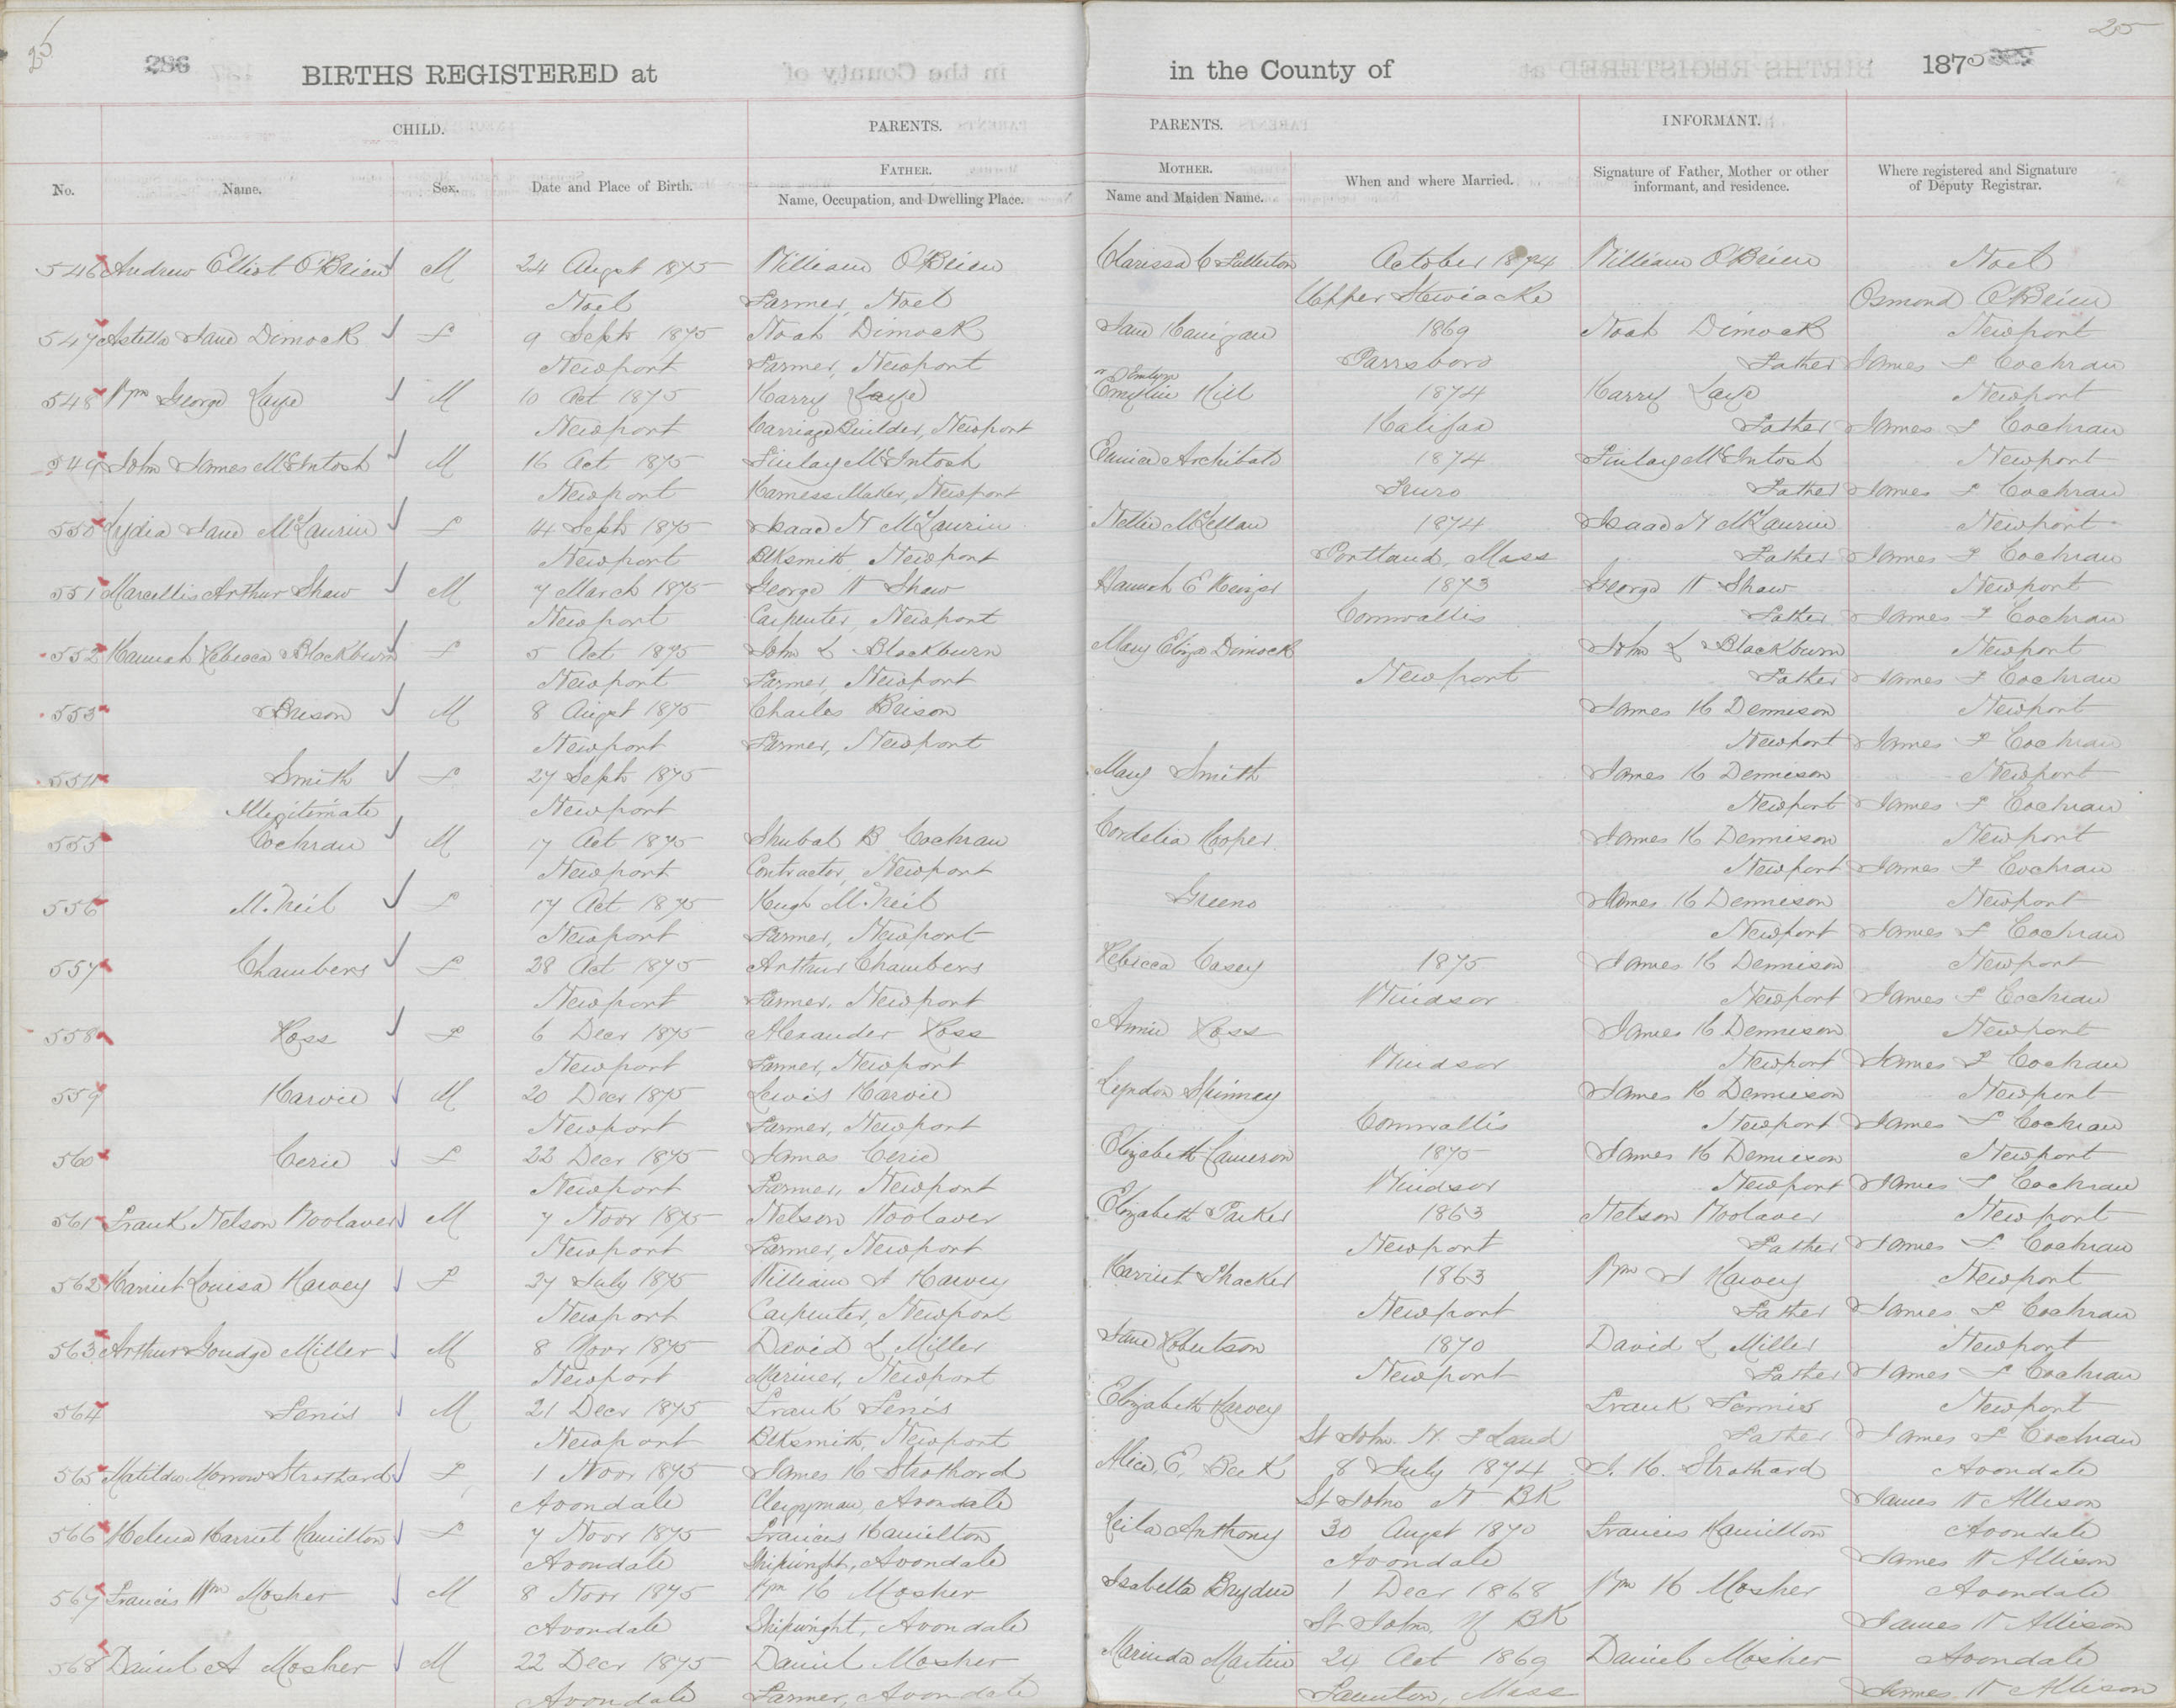 25 25
286 BIRTHS REGISTERED at in the County of 1875
CHILD. PARENTS. PARENTS. INFORMANT.
No. Name. Sex. Date and Place of Birth. FATHER. Name, Occupation, and Dwelling Place. MOTHER. Name and Maiden Name. When and where Married. Signature of Father, Mother or other informant, and residence. Where registered and Signature of Deputy Registrar.
546 Andrew Elliot O'Brien M 24 Augst 1875 William O'Brien Clarissa C Fullerton October 1874 William O'Brien Noel
Noel Farmer, Noel Upper Stewiacke Osmond O'Brien
547 Astella Jane Dimock F 9 Sept 1875 Noah Dimock Jane Hanigan 1869 Noah Dimock Newport
Newport Farmer, Newport Parrsboro Father James F Cochran
548 Wm George Kaye M 10 Oct 1875 Harry Kaye or Emlyn Emylin Hill 1874 Harry Kaye Newport
Newport Carriage Builder, Newport Halifax Father James F Cochran
549 John James McIntosh M 16 Oct 1875 Finlay McIntosh Eunice Archibald 1874 Finlay McIntosh Newport
Newport Harness Maker, Newport Truro Father James F Cochran
550 Lydia Jane McLaurin F 14 Sept 1875 Isaac N McLaurin Nettie McLellan 1874 Isaac N McLaurin Newport
Newport Blksmith, Newport Portland, Mass Father James F Cochran
551 Marcellis Arthur Shaw M 7 March 1875 George W Shaw Hannah E Keizer 1873 George W Shaw Newport
Newport Carpenter, Newport Cornwallis Father James F Cochran
552 Hannah Rebecca Blackburn F 5 Oct 1875 John L Blackburn Mary Eliza Dimock John L Blackburn Newport
Newport Farmer, Newport Newport Father James F Cochran
553 Brison M 8 Augst 1875 Charles Brison James H Dennison Newport
Newport Farmer, Newport Newport James F Cochran
554 Smith F 27 Sept 1875 Mary Smith James H Dennison Newport
Illegitimate Newport Newport James F Cochran
555 Cochran M 17 Oct 1875 Shubal B Cochran Cordelia Cooper James H Dennison Newport
Newport Contractor, Newport Newport James F Cochran
556 McNeil F 17 Oct 1875 Hugh McNeil Greeno James H Dennison Newport
Newport Farmer, Newport Newport James F Cochran
557 Chambers F 28 Oct 1875 Arthur Chambers Rebecca Casey 1875 James H Dennison Newport
Newport Farmer, Newport Windsor Newport James F Cochran
558 Ross F 6 Decr 1875 Alexander Ross Annie Ross James H Dennison Newport
Newport Farmer, Newport Windsor Newport James F Cochran
559 Harvie M 20 Decr 1875 Lewis Harvie Lyndon Skinney James H Dennison Newport
Newport Farmer, Newport Cornwallis Newport James F Cochran
560 Cerie F 22 Decr 1875 James Cerie Elizabeth Cameron 1875 James H Dennison Newport
Newport Farmer, Newport Windsor Newport James F Cochran
561 Frank Nelson Woolaver M 7 Novr 1875 Nelson Woolaver Elizabeth Parker 1863 Nelson Woolaver Newport
Newport Farmer, Newport Newport Father James F Cochran
562 Harriet Louisa Harvey F 27 July 1875 William J Harvey Harriet Shacker 1863 Wm J Harvey Newport
Newport Carpenter, Newport Newport Father James F Cochran
563 Arthur Goudge Miller M 8 Novr 1875 David L Miller Jane Robertson 1870 David L Miller Newport
Newport Mariner, Newport Newport Father James F Cochran
564 Fenis M 21 Decr 1875 Frank Fenis Elizabeth Harvey Frank Fennis Newport
Newport Blksmith, Newport St John N. F Land Father James F Cochran
565 Matilda Morrow Strothard F 1 Novr 1875 James H Strothard Alice E. Beck 8 July 1874 J. H. Strothard Avondale
Avondale Clergyman, Avondale St Johns N BK James W Allison
566 Helena Harriet Hamilton F 7 Novr 1875 Francis Hamilton Leila Anthony 30 Augst 1870 Francis Hamilton Avondale
Avondale Shipwright, Avondale Avondale James W Allison
567 Francis Wm Mosher M 8 Novr 1875 Wm H Mosher Isabella Bryden 1 Decr 1868 Wm H Mosher Avondale
Avondale Shipwright, Avondale St John, N BK James W Allison
568 Daniel A Mosher M 22 Decr 1875 Daniel Mosher Marinda Martin 24 Oct 1869 Daniel Mosher Avondale
Avondale Farmer, Avondale Taunton, Mass James W Allison